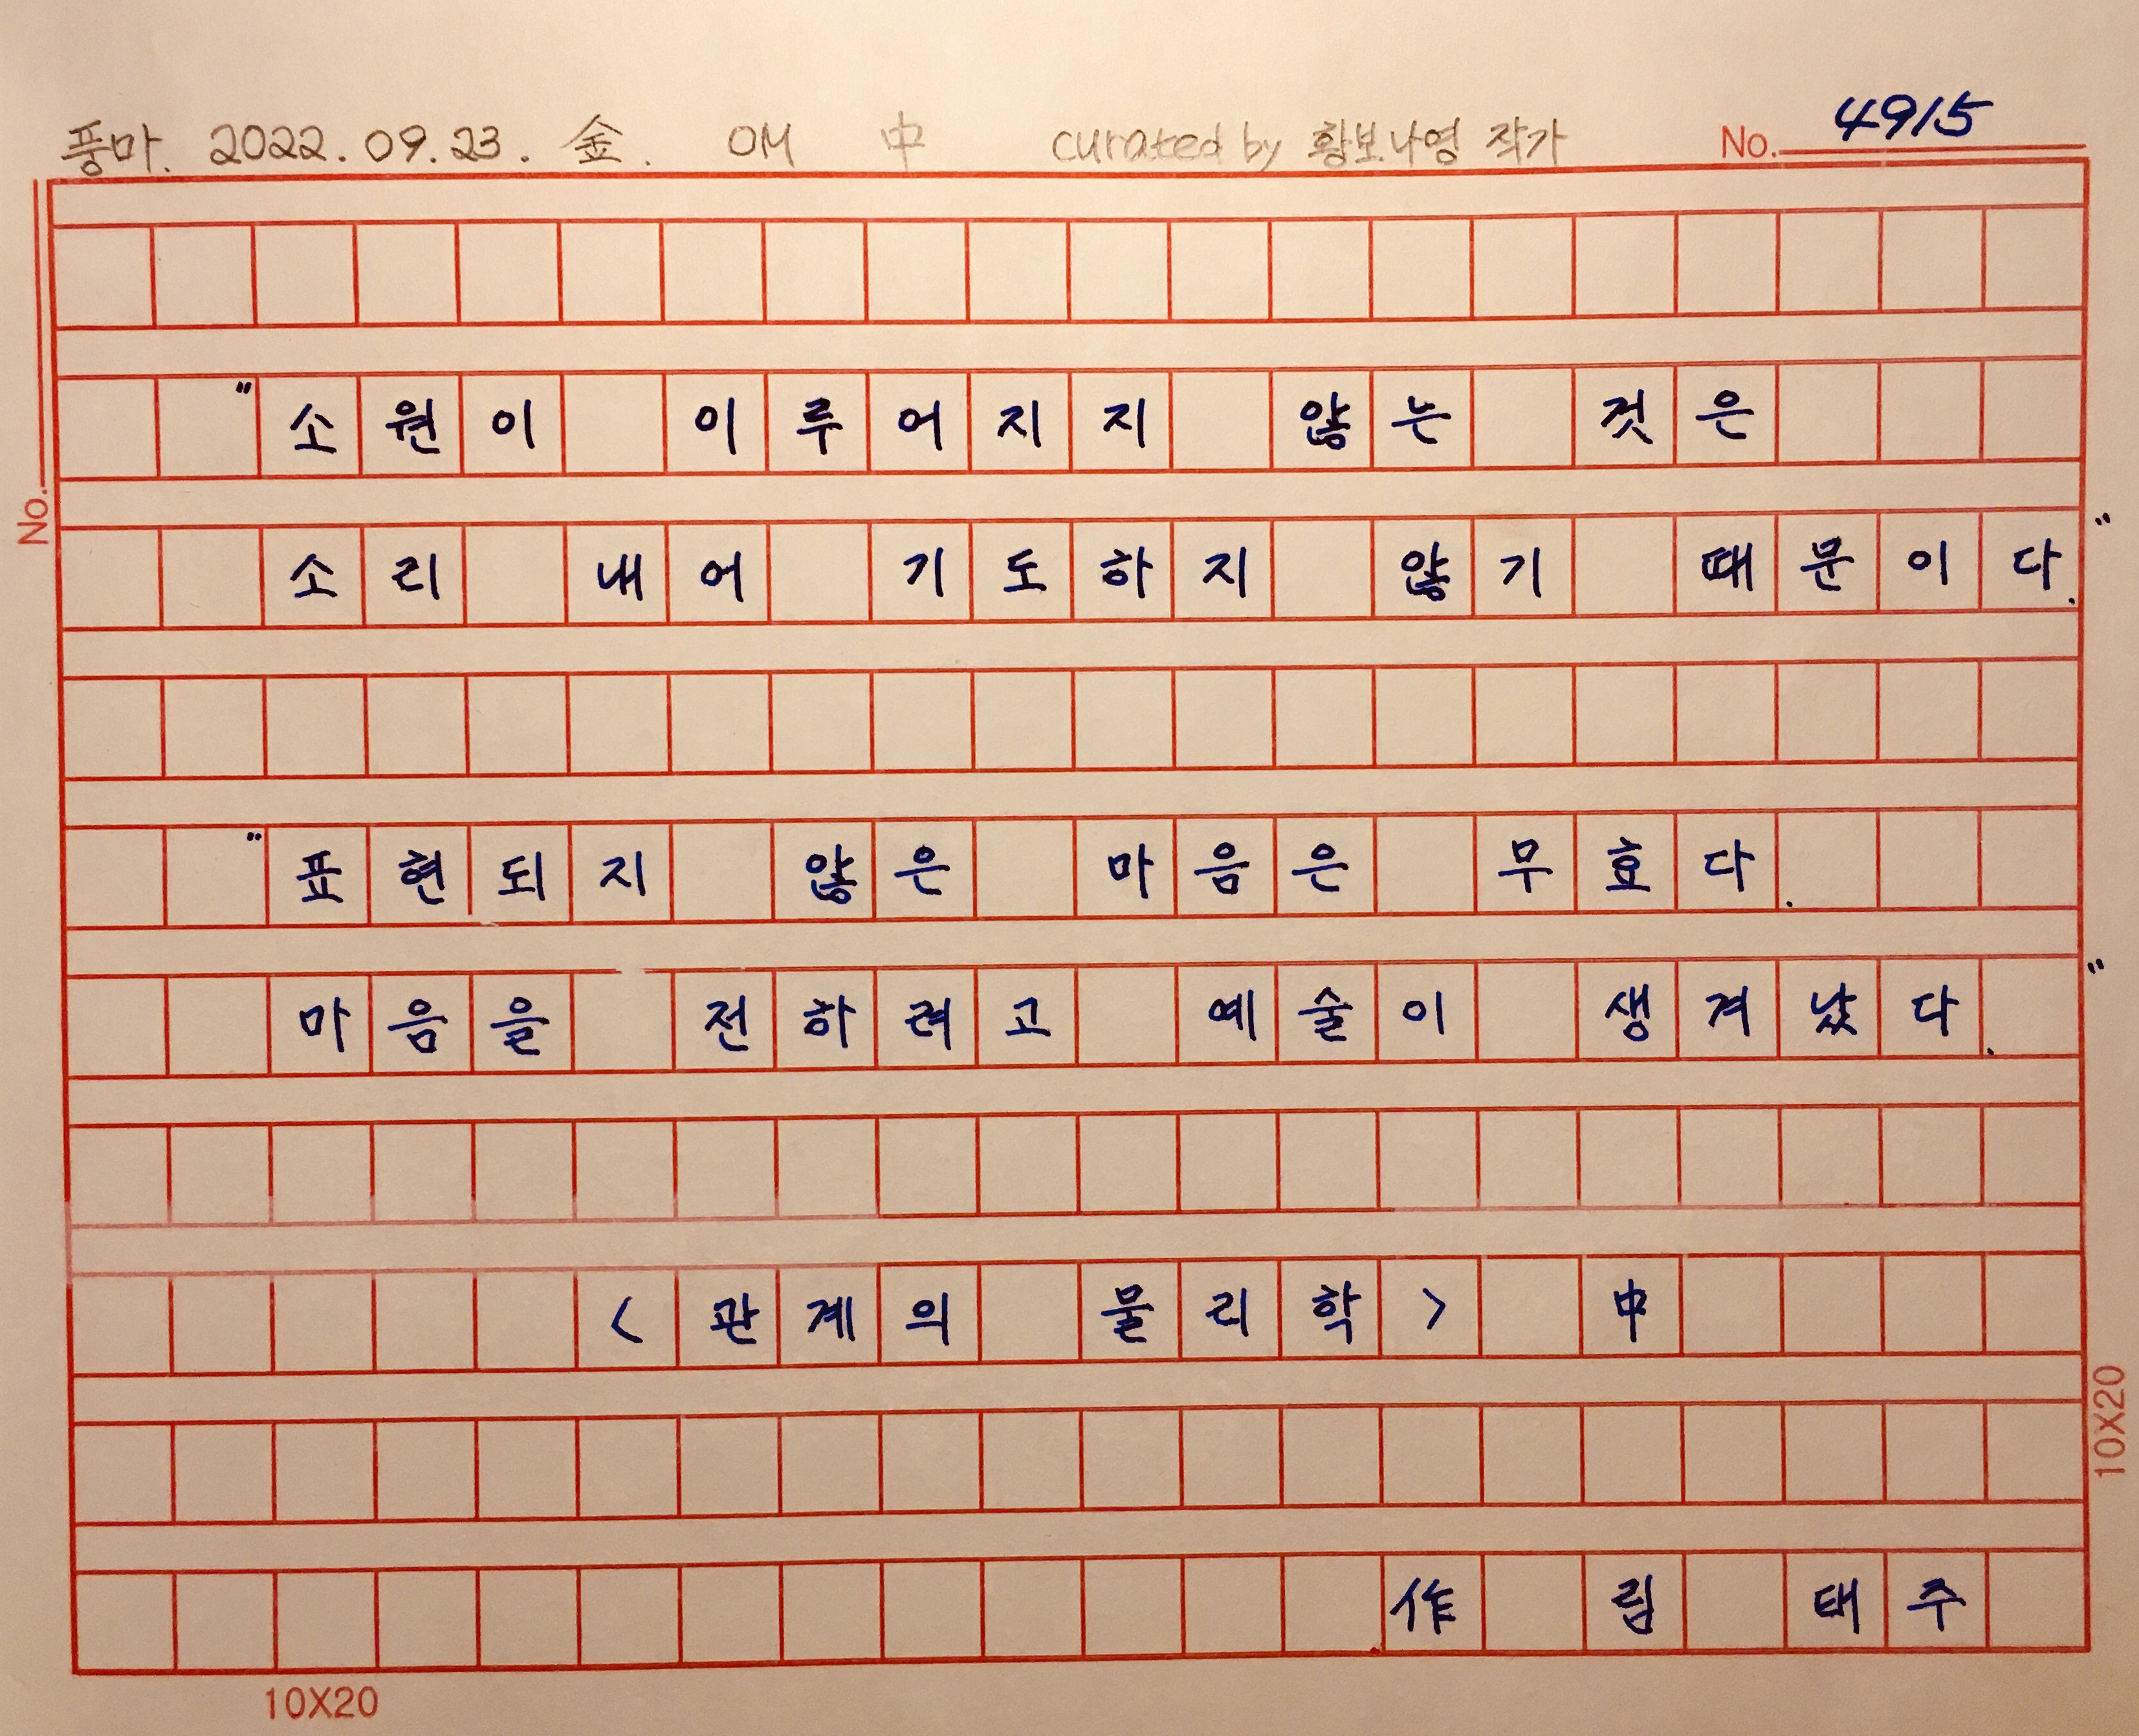 풍마. 2022.09.23. 金. OM 中 curated by 황보나영 작가 No. 4915
"소원이 이루어지지 않는 것은
No.
소리 내어 기도하지 않기 때문이다."
"표현되지 않은 마음은 무효다.
마음을 전하려고 예술이 생겨났다."
<관계의 물리학> 中
10X20
作 림 태주
10X20